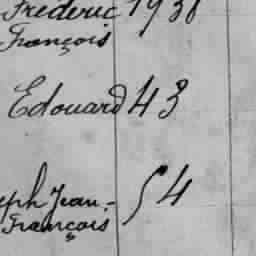 Frédéric 1938
François
Edouard 43
eph Jean-
François 54